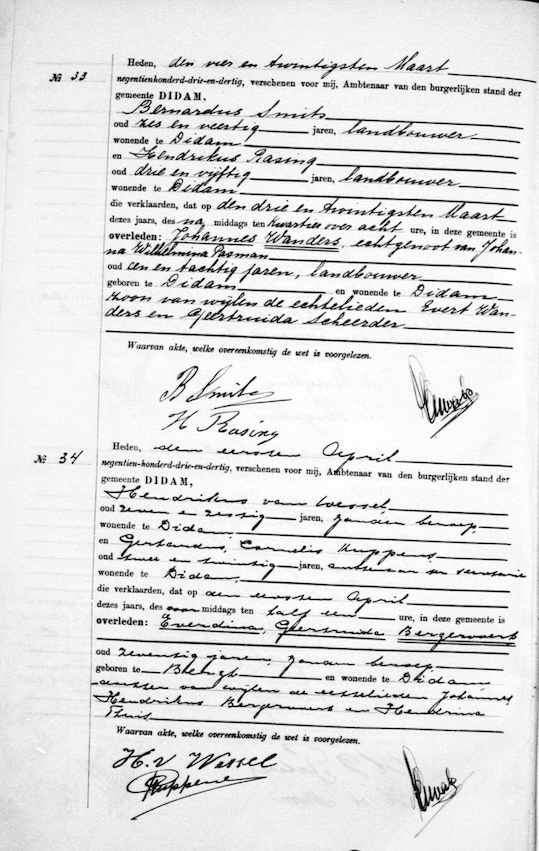 Heden, den vier en twintigsten Maart
№ 33 negentienhonderd-drie-en-dertig, verschenen voor mij, Ambtenaar van den burgerlijken stand der
gemeente DIDAM,
Bernardus Smits
oud zes en veertig jaren, landbouwer
wonende te Didam
en Hendrikus Rasing
oud drie en vijftig jaren, landbouwer
wonende te Didam
die verklaarden, dat op den drie en twintigsten Maart
dezes jaars, des na middags ten kwartier over acht ure, in deze gemeente is
overleden: Johannes Wanders, echtgenoot van Johan-
na Wilhelmina Pasman
oud een en tachtig jaren, landbouwer
geboren te Didam en wonende te Didam
zoon van wijlen de echtelieden Evert Wan-
ders en Geertruida Scheerder
Waarvan akte, welke overeenkomstig de wet is voorgelezen.
B Smits
H Rasing
Heden, den eersten April
№ 34 negentien-honderd-drie-en-dertig, verschenen voor mij, Ambtenaar van den burgerlijken stand der
gemeente DIDAM,
Hendrikus van Wessel
oud zeven en zestig jaren, zonder beroep,
wonende te Didam
en Cornelis Kuppens,
oud twee en twintig jaren, ambtenaar ter secretarie
wonende te Didam,
die verklaarden, dat op den eersten April
dezes jaars, des voor middags ten half een ure, in deze gemeente is
overleden: Everdina, Geertruida Bergervoert
oud zeventig jaren, zonder beroep,
geboren te en wonende te Didam
van wijlen de echtelieden Johannes
Hendrikus Bergervoert en Hendrina
Thuis
Waarvan akte, welke overeenkomstig de wet is voorgelezen.
H. v Wessel
Kuppens